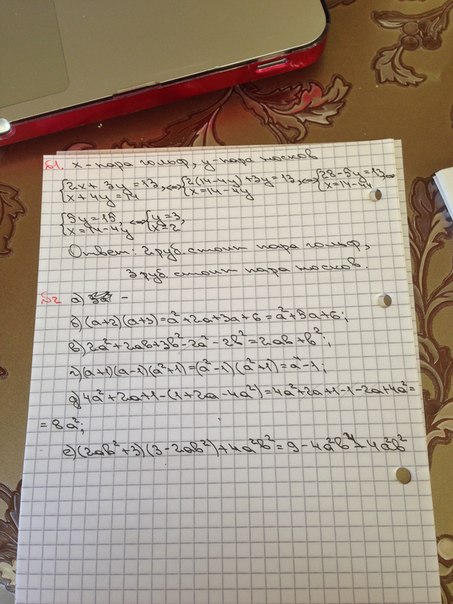 №1. x - пара гольф, y - пара носков
{2x + 3y = 13, x + 4y = 14 ⇔ {2(14-4y) + 3y = 13, x = 14 - 4y ⇔ {28 - 5y = 13 x = 14 - 4y ⇔
{5y = 15, x = 14 - 4y ⇔ {y = 3, x = 2
Ответ: 2 руб. стоит пара гольф,
3 руб. стоит пара носков.
№2 а) -
б) (a+2)(a+3) = a² + 2a + 3a + 6 = a² + 5a + 6;
в) 2a² + 2ab + 3b² - 2a² - 2b² = 2ab + b²;
г) (a+1)(a-1)(a²+1) = (a²-1)(a²+1) = a⁴ - 1;
д) 4a² + 2a + 1 - (1 + 2a - 4a²) = 4a² + 2a + 1 - 1 - 2a + 4a² =
= 8a²;
е) (2ab² + 3)(3 - 2ab²) + 4a²b² = 9 - 4a²b⁴ + 4a²b²